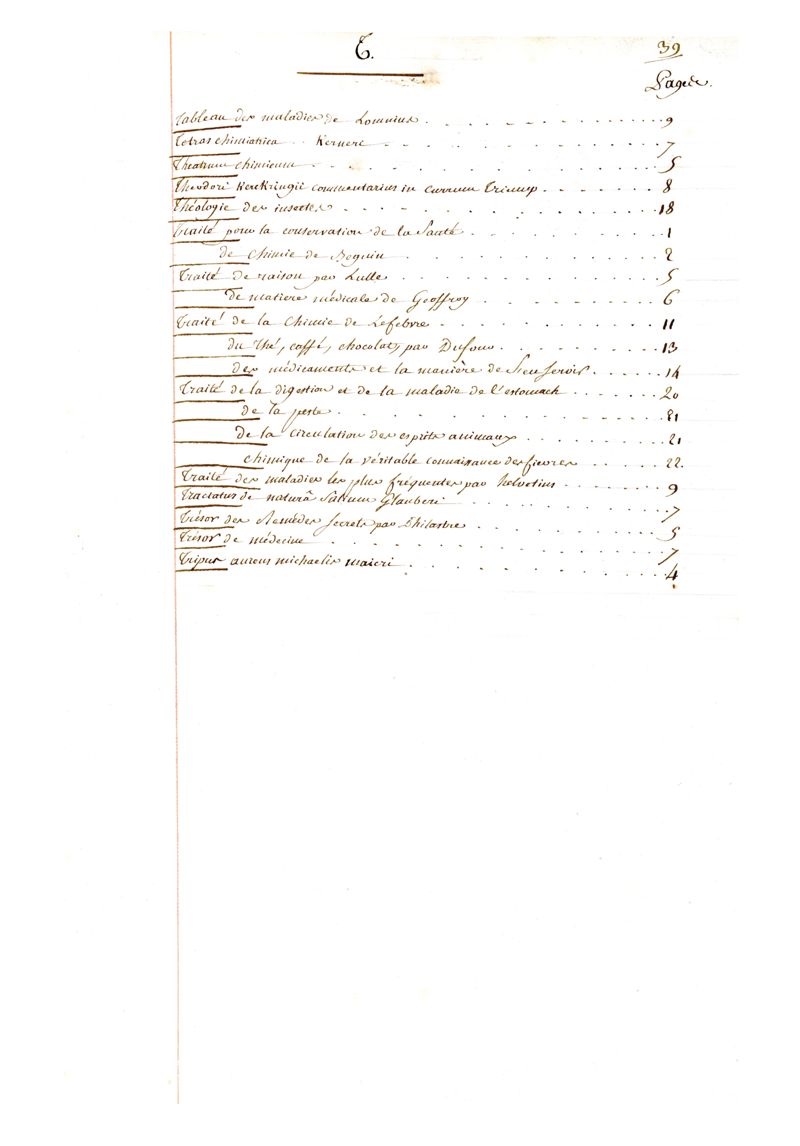 T.
39
Pages.
Tableau des maladies de Lomnius . 9
Tetras chimiatrica . . Kerneri . 7
Theatrum chimicum . 5
Theodori Kerckringii commentarius in currum Triump . 8
Théologie des insectes . 18
Traité pour la conservation de la Santé . 1
de Chimie de Beguin . 2
Traité de raison par Lulle . 5
de matiere médicale de Geoffroy . 6
Traité de la Chimie de Lefebvre . 11
du thé, caffé, chocolat, par Dufour . 13
des médicaments et la manière de s'en servir . 14
Traité de la digestion et de la maladie de l'estomach . 20
de la peste . 21
de la Circulation des esprits animaux . 21
chimique de la véritable connaissance des fievres . 22.
Traité des maladies les plus fréquentes par helvetius . 9
Tractatus de naturâ Salium Glauberi . 7
Trésor des Remèdes Secrets par Philastre . 5
Trésor de médecine . 7
Tripus aureus michaelis maieri . 4